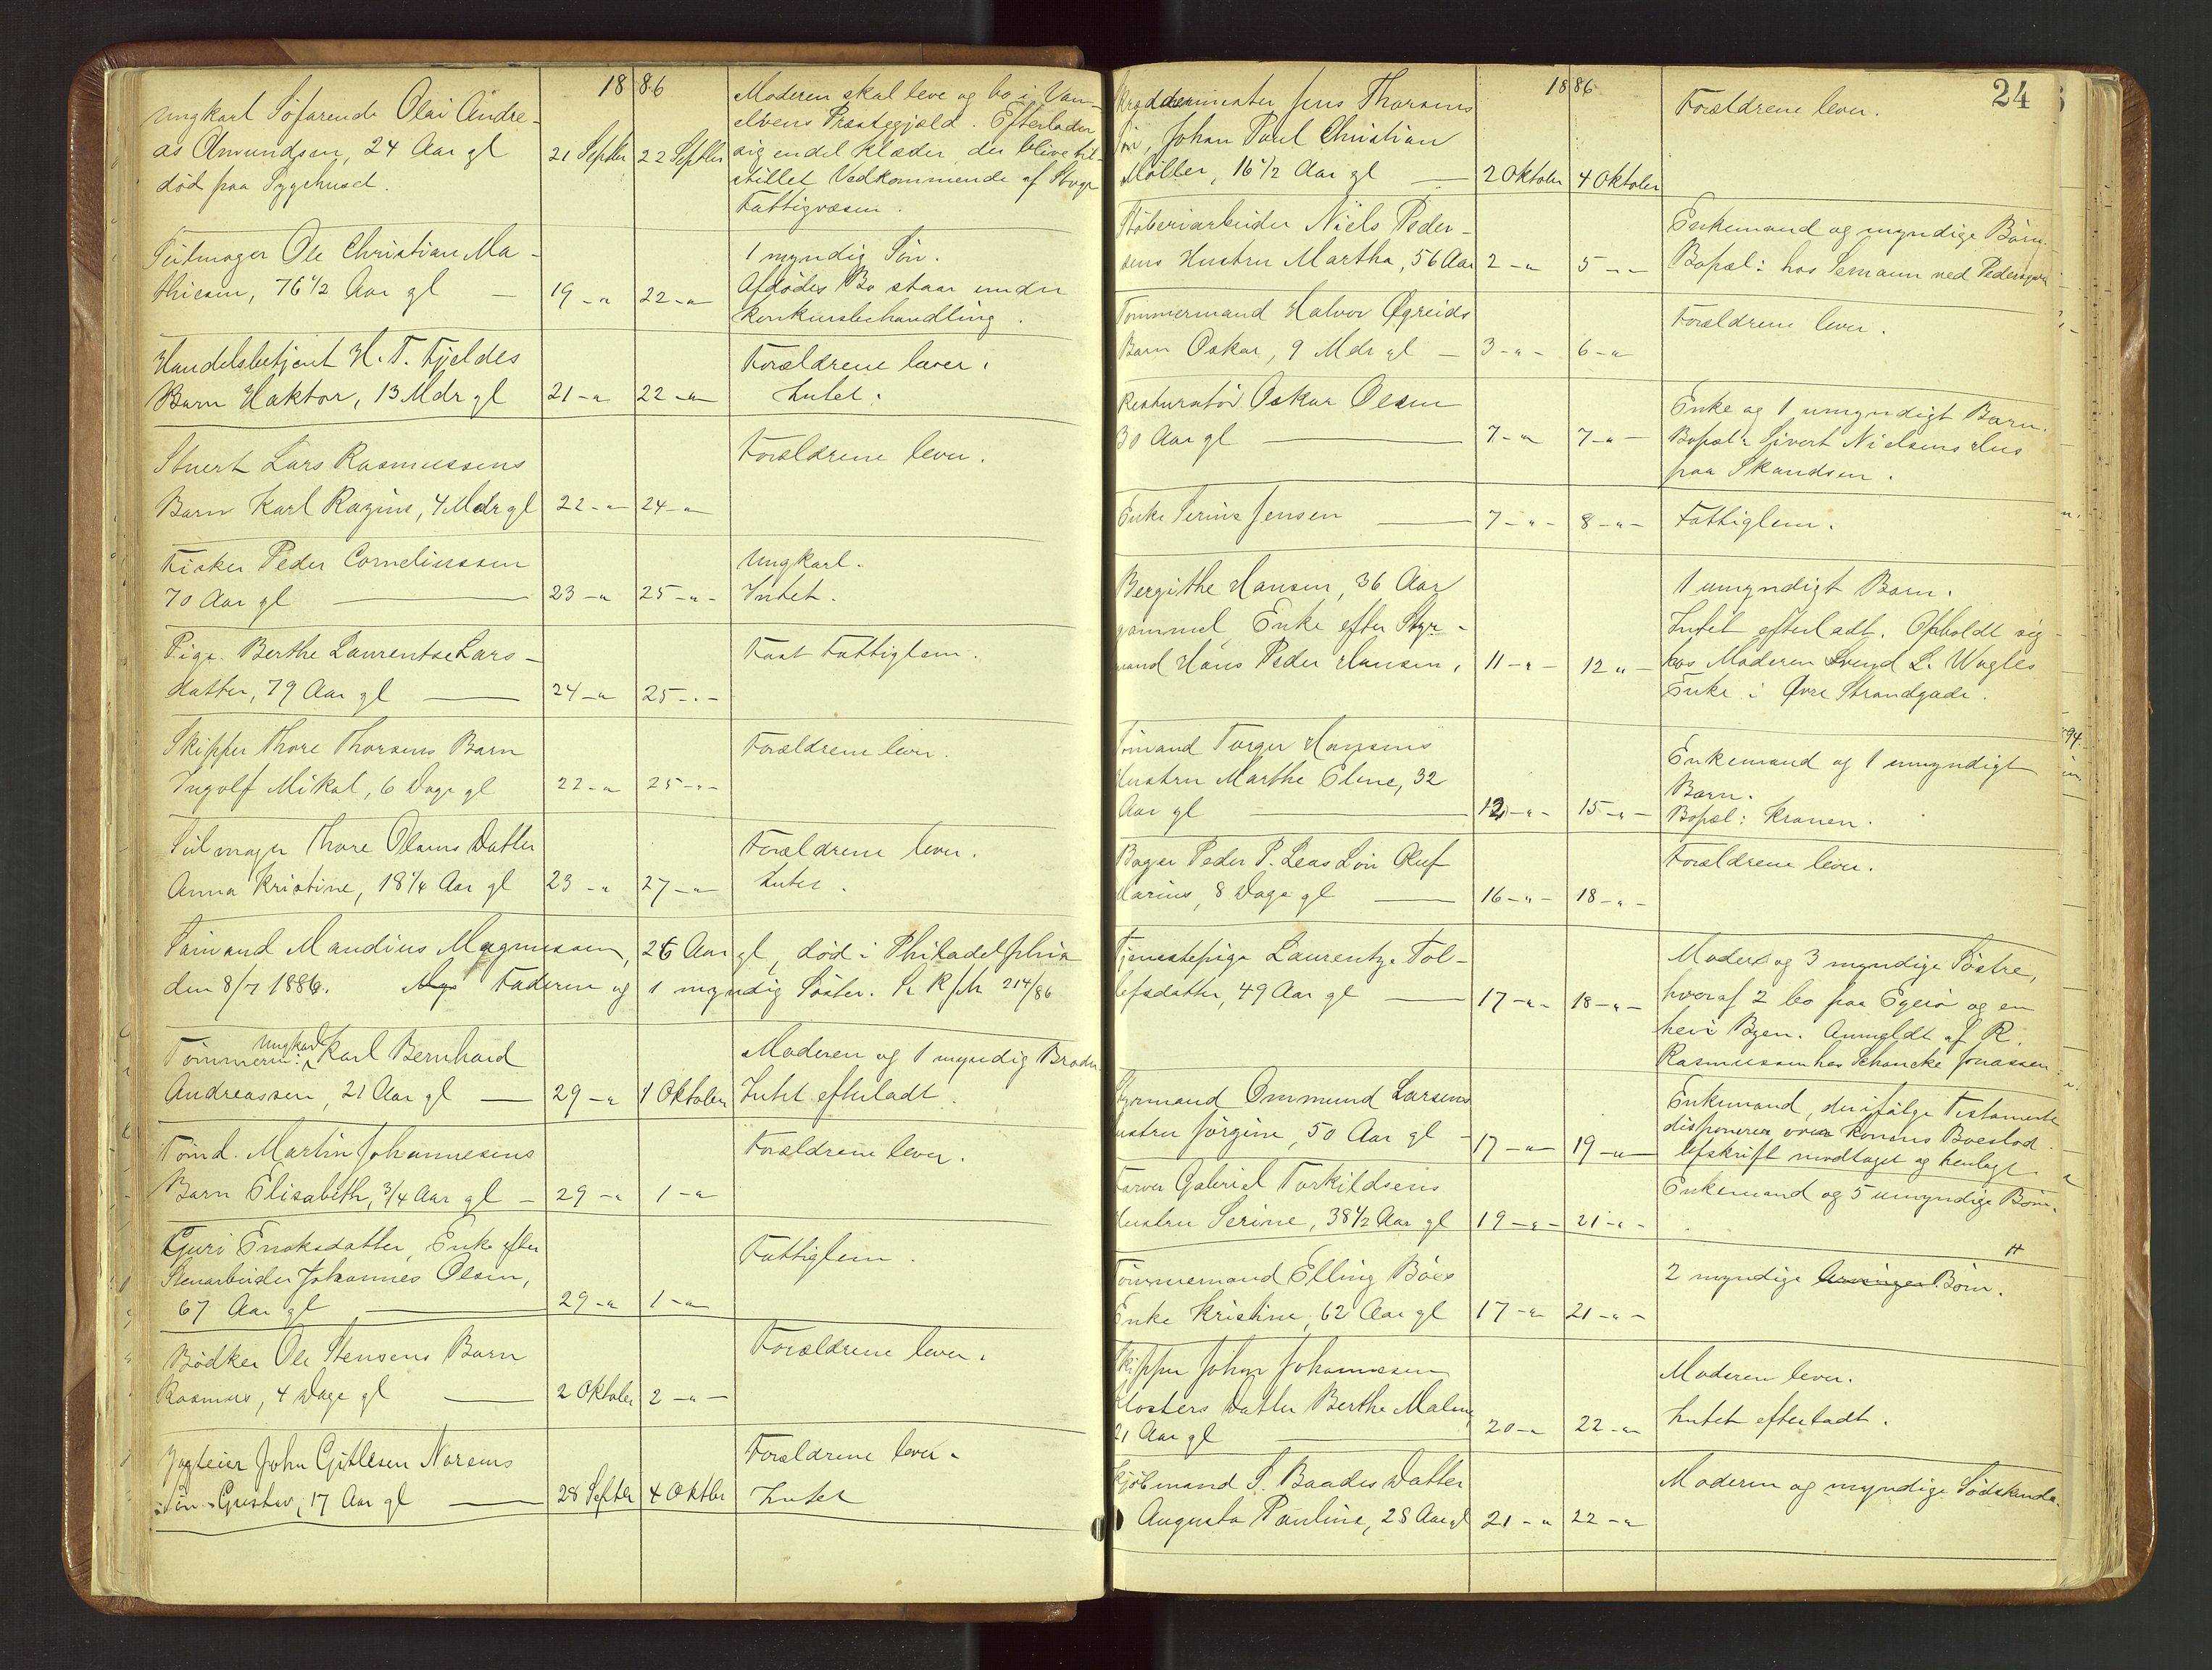 18 86
Ungkarl Søfarende Olai Andre-
as Amundsen, 24 Aar gl
død paa Sygehuset.
21 Septbr 22 Septbr
Moderen skal leve og bo i Van-
elvens Præstegjeld. Efterlader
sig endel Klæder, der blive til-
stillet Vedkommende af Stvgr
Fattigvæsen.
Seilmager Ole Christian Ma-
thiesen, 76 1/2 Aar gl —
19 - " 22 - "
1 myndig Søn.
Afdødes Bo staar under
Konkursbehandling.
Handelsbetjent H. T. Fjeldes
Barn Haktor, 13 Mdr gl
21 - " 22 - "
Forældrene lever.
Intet.
Stuert Lars Rasmussens
Barn Karl Ragin, 4 Mdr gl
22 - " 24 - "
Forældrene lever.
Fisker Peder Corneliussen
70 Aar gl —
23 - " 25 - " -
Ungkarl.
Intet.
Pige Berthe Laurentse Lars-
datter, 79 Aar gl —
24 - " 25 - " -
Fast Fattiglem.
Skipper Thore Thorsens Barn
Ingolf Mikal, 6 Dage gl
22 - " 25 - " -
Forældrene lever.
Seilmager Thore Olsens Datter
Anna Kristine, 18 1/4 Aar gl
23 - " 27 - "
Forældrene lever.
Intet.
Sømand Mandius Magnussen, 26 Aar gl, død i Philadelphia
den 8/7 1886. Faderen og 1 myndig Søster. Se R/M 214/86
Tømmerm: Ungkarl Karl Bernhard
Andreassen, 21 Aar gl —
29 - " 1 Oktober
Moderen og 1 myndig Broder
Intet efterladt.
Tømd. Martin Johannesens
Barn Elisabeth, 3/4 Aar gl -
29 - " 1 - "
Forældrene lever.
Guri Enoksdatter, Enke efter
Stenarbeider Johannes Olsen,
67 Aar gl —
29 - " 1 - "
Fattiglem.
Bødker Ole Stensens Barn
Rasmus, 4 Dage gl —
2 Oktober 2 - " -
Forældrene lever.
Jagteier John Gitlesen Norems
Søn Gustav, 17 Aar gl —
28 Septbr 4 Oktbr
Forældrene lever.
Intet
24
18 86
Skræddermester Jens Thorsens
Søn, Johan Paul Christian
Møller, 16 1/2 Aar gl —
2 Oktober 4 Oktober
Forældrene lever.
Støberiarbeider Niels Peder-
sens Hustru Martha, 56 Aar
2 - " 5 - " -
Enkemand og myndige Børn.
Bopæl: hos Semann ved
Tømmermand Halvor Øgreids
Barn Oskar, 9 Mdr gl —
3 - " - 6 - "
Forældrene lever.
Restauratør Oskar Olsen
30 Aar gl —
7 - " 7 - " -
Enke og 1 umyndigt Barn.
Bopæl: Sivert Nielsens Hus
paa Skandsen.
Enke Serine Jensen —
7 - " - 8 - " -
Fattiglem.
Bergithe Hansen, 36 Aar
gammel Enke efter Styr-
mand Hans Peder Hansen,
11 - " - 12 " -
1 umyndigt Barn.
Intet efterladt. Opholdt sig
hos Moderen Svend L. Wagles
Enke i Øvre Strandgade.
Sømand Torger Hansens
Hustru Marthe Eline, 32
Aar gl —
12 - " - 15 - " -
Enkemand og 1 umyndigt
Barn.
Bopæl: Kranen.
Bager Peder P. Leas Søn Oluf
Marius, 8 Dage gl —
16 - " - 18 - " -
Forældrene lever.
Tjenestepige Laurentze Tol-
lefsdatter, 49 Aar gl —
17 - " - 18 - " -
Moder og 3 myndige Søstre,
hvoraf 2 bo paa Egerø og en
her i Byen. Anmeldt af R.
Rasmussen hos Schancke Jonassen.
Styrmand Ommund Larsens
Hustru Jørgine, 50 Aar gl -
17 - " - 19 - "
Enkemand, der ifølge Testamente
disponerer over Konens Boeslod.
Afskrift modtaget og henlagt.
Farver Gabriel Torkildsens
Hustru Serine, 38 1/2 Aar gl
19 - " - 21 - " -
Enkemand og 5 umyndige Børn.
Tømmermand Elling Bøes
Enke Kristine, 62 Aar gl
17 - " 21 - " -
2 myndige Arvinger Børn.
Skipper Johan Johannesen
Klosters Datter Berthe Malene,
21 Aar gl —
20 - " 22 - "
Moderen lever.
Intet efterladt.
Kjøbmand S. Baades Datter
Augusta Pauline, 28 Aar gl
21 - " 22 - "
Moderen og myndige Sødskende.